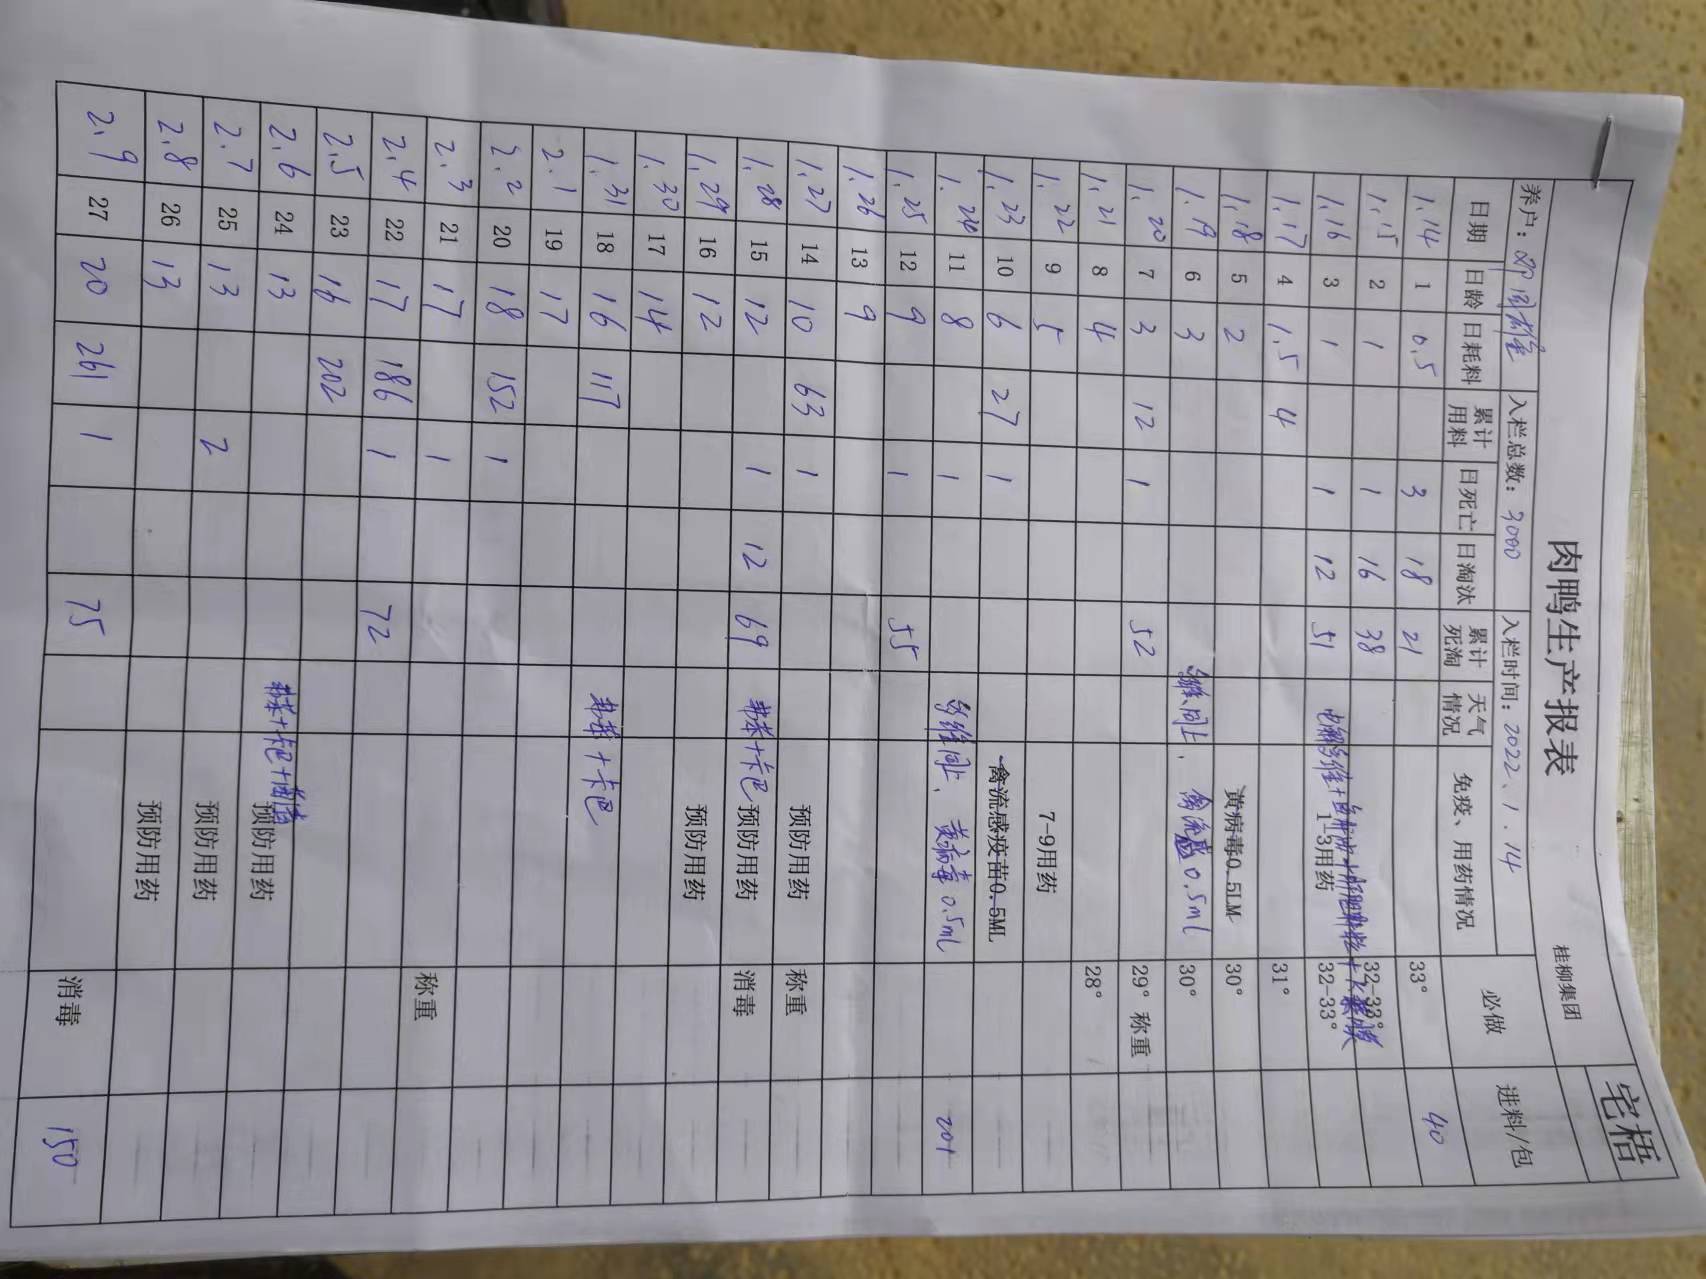 肉鸭生产报表
桂柳集团
宅梧
养户: 入栏总数: 3000 入栏时间: 2022.1.14
日期 日龄 日耗料 累计用料 日死亡 日淘汰 累计死淘 天气情况 免疫、用药情况 必做 进料/包
1.14 1 0.5 3 18 21 33° 40
1.15 2 1 1 16 38 32-33°
1.16 3 1 1 12 51 1-3用药 32-33°
1.17 4 1.5 4 31°
1.18 5 2 黄病毒0.5LM 30°
1.19 6 3 多维同上、禽流感0.5ml 30°
1.20 7 3 12 1 52 29° 称重
1.21 8 4 28°
1.22 9 5 7-9用药
1.23 10 6 27 1 禽流感疫苗0.5ML
1.24 11 8 1 多维同上、黄病毒0.5ml 201
1.25 12 9 1 55
1.26 13 9
1.27 14 10 63 1 预防用药 称重
1.28 15 12 1 12 69 +卡巴 预防用药 消毒
1.29 16 12 预防用药
1.30 17 14
1.31 18 16 117 +卡巴
2.1 19 17
2.2 20 18 152 1
2.3 21 17 1 称重
2.4 22 17 186 1 72
2.5 23 16 202
2.6 24 13 +卡巴+ 预防用药
2.7 25 13 2 预防用药
2.8 26 13 预防用药
2.9 27 20 261 1 75 消毒 150